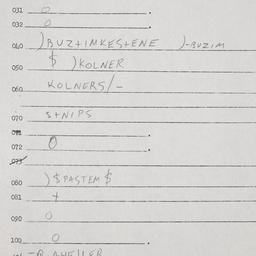 031 0 .
032 0 .
040 )BUZ+IMKES+ENE )-BUZIM
050 $ )KOLNER
060 KOLNERS/-
070 S+NIPS
071 .
072 0 .
073
080 )$PASTEM$
081 +
090 0
100 0 .